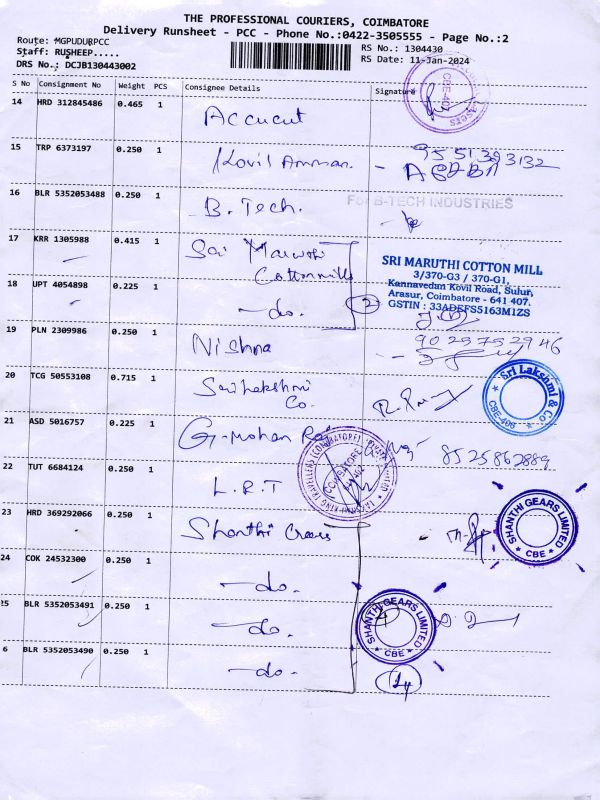 THE PROFESSIONAL COURIERS, COIMBATORE
Delivery Runsheet - PCC - Phone No.:0422-3505555 - Page No.:2
Route: MGPUDURPCC
RS No.: 1304430
Staff: RUSHEEP.....
RS Date: 11-Jan-2024
DRS No.: DCJB130443002
S No Consignment No Weight PCS Consignee Details Signature
14 HRD 312845486 0.465 1 Accucut
15 TRP 6373197 0.250 1 Kovil Amman. - 9551393132
16 BLR 5352053488 0.250 1 B. Tech. For B-TECH INDUSTRIES
17 KRR 1305988 0.415 1 Sai Maruthi
Cottonmills
SRI MARUTHI COTTON MILL
3/370-G3 / 370-G1,
Kannavedan Kovil Road, Sulur,
Arasur, Coimbatore - 641 407.
GSTIN : 33ADEFS5163M1ZS
18 UPT 4054898 0.225 1 - do.
19 PLN 2309986 0.250 1 Nishna 9025752946
20 TCG 50553108 0.715 1 Sri Lakshmi
Co.
Sri Lakshmi & Co
CBE-406
21 ASD 5016757 0.225 1 G. Mohan 8525862889
22 TUT 6684124 0.250 1 L.R.T
COIMBATORE
23 HRD 369292066 0.250 1 Shanthi Gears
SHANTHI GEARS LIMITED
CBE
24 COK 24532300 0.250 1 - do.
25 BLR 5352053491 0.250 1 - do.
SHANTHI GEARS LIMITED
CBE
6 BLR 5352053490 0.250 1 - do.